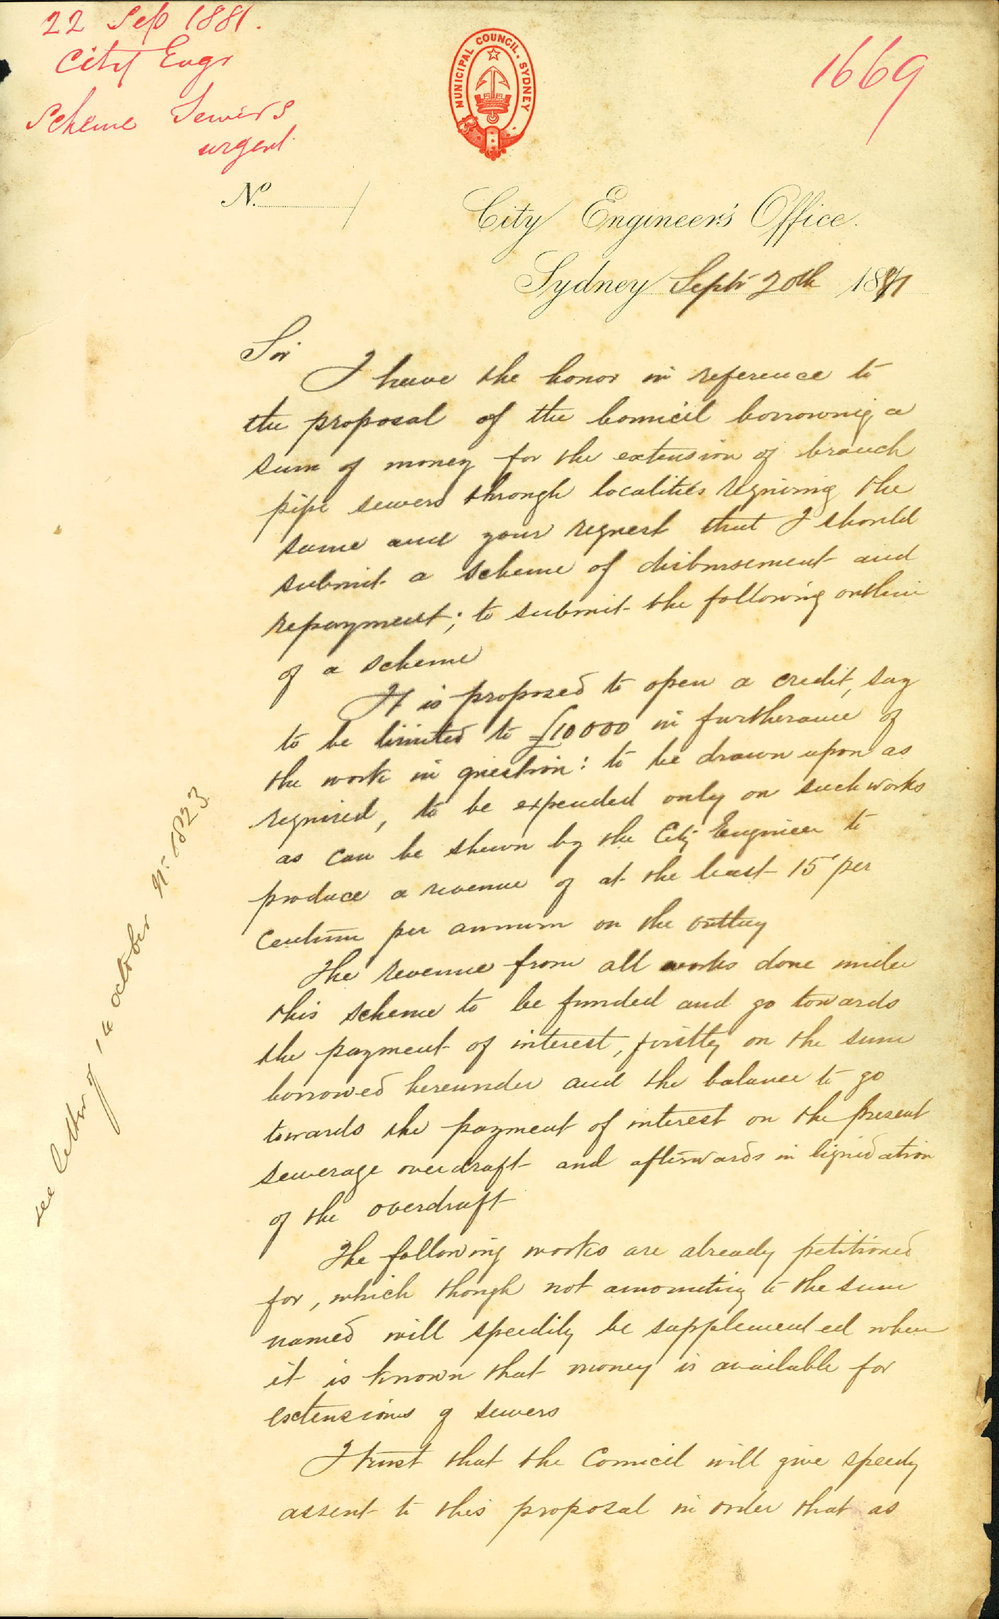 22 Sep 1881.
City Engr
Scheme Sewers
urgent
1669
MUNICIPAL COUNCIL. SYDNEY
No.
City Engineer's Office.
Sydney Septr 20th 1881
Sir
I have the honor in reference to
the proposal of the Council borrowing a
sum of money for the extension of branch
pipe sewers through localities requiring the
same and your request that I should
submit a scheme of disbursement and
repayment; to submit the following outline
of a scheme
It is proposed to open a credit, say
to be limited to £10000 in furtherance of
the work in question: to be drawn upon as
required, to be expended only on such works
as can be shewn by the City Engineer to
produce a revenue of at the least 15 per
centum per annum on the outlay
The revenue from all works done under
this scheme to be funded and go towards
the payment of interest, firstly on the sum
borrowed hereunder and the balance to go
towards the payment of interest on the present
sewerage overdraft and afterwards in liquidation
of the overdraft
The following works are already petitioned
for, which though not amounting to the sum
named will speedily be supplemented when
it is known that money is available for
extensions of sewers
I trust that the Council will give speedy
assent to this proposal in order that as
see letter of 14 October No. 1823